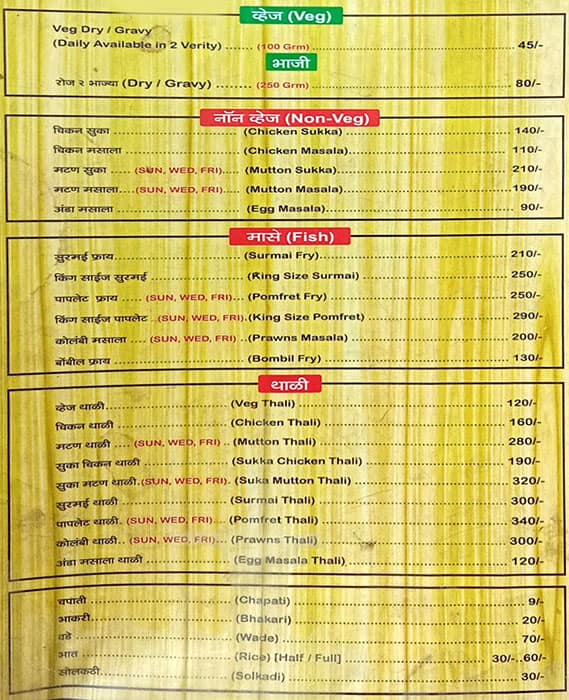 व्हेज (Veg)
Veg Dry / Gravy
(Daily Available in 2 Verity) ...... (100 Grm) ...... 45/-
भाजी
रोज २ भाज्या (Dry / Gravy) ........ (250 Grm) ...... 80/-
नॉन व्हेज (Non-Veg)
चिकन सुका ...... (Chicken Sukka) ...... 140/-
चिकन मसाला ...... (Chicken Masala) ...... 110/-
मटण सुका ..... (SUN, WED, FRI).... (Mutton Sukka) ...... 210/-
मटण मसाला.... (SUN, WED, FRI).... (Mutton Masala) ...... 190/-
अंडा मसाला ...... (Egg Masala) ...... 90/-
मासे (Fish)
सुरमई फ्राय ...... (Surmai Fry) ...... 210/-
किंग साईज सुरमई ...... (King Size Surmai) ...... 250/-
पापलेट फ्राय ..... (SUN, WED, FRI)... (Pomfret Fry) ...... 250/-
किंग साईज पापलेट ..(SUN, WED, FRI).(King Size Pomfret) ...... 290/-
कोलंबी मसाला .... (SUN, WED, FRI) ..(Prawns Masala) ...... 200/-
बोंबील फ्राय ...... (Bombil Fry) ...... 130/-
थाळी
व्हेज थाळी ...... (Veg Thali) ...... 120/-
चिकन थाळी ...... (Chicken Thali) ...... 160/-
मटण थाळी .... (SUN, WED, FRI) ... (Mutton Thali) ...... 280/-
सुका चिकन थाळी ...... (Sukka Chicken Thali) ...... 190/-
सुका मटण थाळी.(SUN, WED, FRI). (Suka Mutton Thali) ...... 320/-
सुरमई थाळी ...... (Surmai Thali) ...... 300/-
पापलेट थाळी. (SUN, WED, FRI).... (Pomfret Thali) ...... 340/-
कोळंबी थाळी.. (SUN, WED, FRI)... (Prawns Thali) ...... 300/-
अंडा मसाला थाळी ...... (Egg Masala Thali) ...... 120/-
चपाती ...... (Chapati) ...... 9/-
भाकरी ...... (Bhakari) ...... 20/-
वडे ...... (Wade) ...... 70/-
भात ...... (Rice) [Half / Full] ...... 30/-..60/-
सोलकढी ...... (Solkadi) ...... 30/-